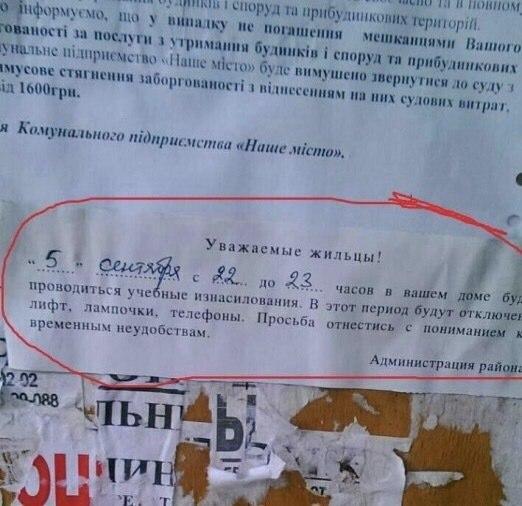 інформуємо, що у випадку не погашення мешканцями Вашого
гованості за послуги з утримання будинків і споруд та прибудинкових
унальне підприємство «Наше місто» буде вимушено звернутися до суду з
имусове стягнення заборгованості з віднесенням на них судових витрат,
ід 1600грн.
я Комунального підприємства «Наше місто».
Уважаемые жильцы!
" 5 " сентября с 22 до 23 часов в вашем доме буд
проводиться учебные изнасилования. В этот период будут отключен
лифт, лампочки, телефоны. Просьба отнестись с пониманием к
временным неудобствам.
Администрация района
ЛЬН